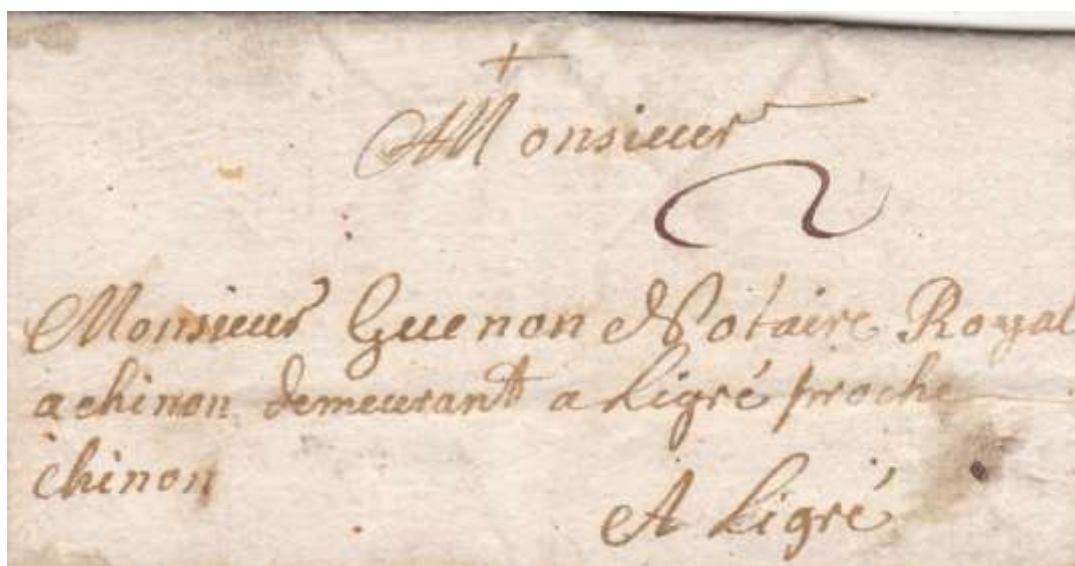 +
Monsieur
2
Monsieur Guenon Notaire Royal
a chinon demeurant a Ligré proche
chinon
A Ligré